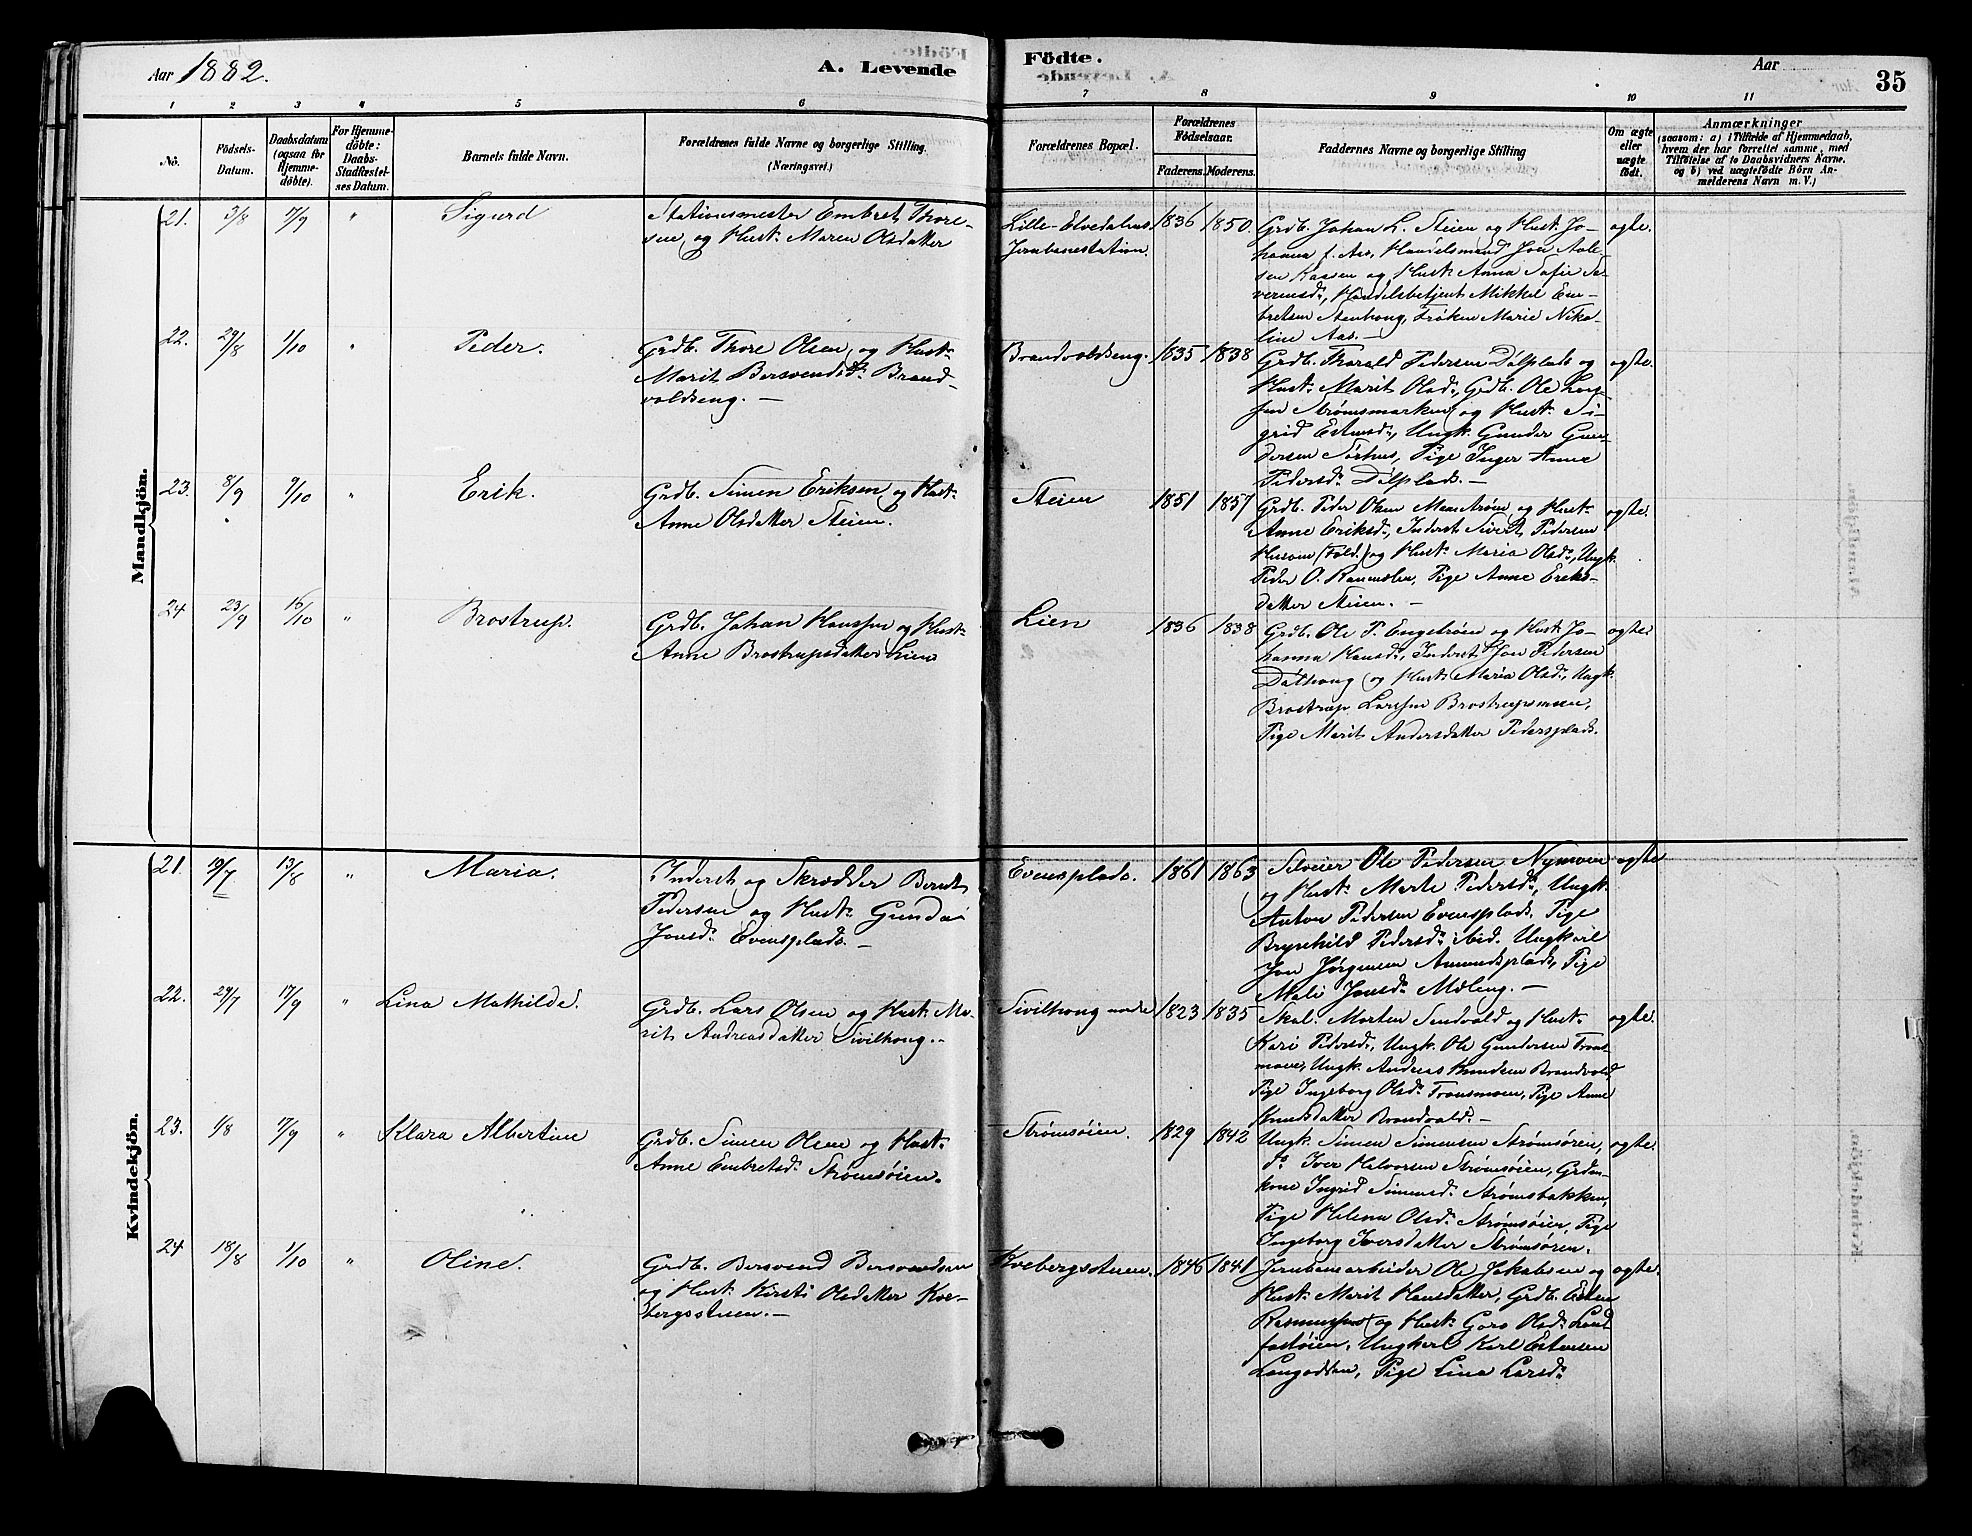 Aar 1882.
A. Levende
Födte.
Aar
35
1 2 3 4 5 6 7 8 9 10 11
No.
Födsels-
Datum.
Daabsdatum
(ogsaa for
Hjemme-
döbte).
For Hjemme-
döbte:
Daabs-
Stadfæstel-
ses Datum.
Barnets fulde Navn.
Forældrenes fulde Navne og borgerlige Stilling
(Næringsvei.)
Forældrenes Bopæl.
Forældrenes
Födselsaar.
Faderens. Moderens.
Faddernes Navne og borgerlige Stilling
Om ægte
eller
uægte
født.
Anmærkninger
(saasom: a) i Tilfælde af Hjemmedaab,
hvem der har forrettet samme, med
Tilföielse af to Daabsvidners Navne,
og b) ved uægtefödte Börn An-
melderens Navn m. V.)
Mandkjön.
21. 3/8 17/9 " Sigurd
Stationsmester Embret Thore-
sen og Hust. Maren Olsdatter
Lille-Elvedalens
Jernbanestation.
1836 1850.
Grdb. Johan L. Steien og Hust. Jo-
hanna f. Aas, Handelsmand Jon
og Hust. Anna Sofie
Handelsbetjent Mikkel Em-
bretsen Stenhoug, Frøken Marie Niko-
line Aas.-
ægte.
22. 29/8 1/10 " Peder.
Grdb. Thore Olsen og Hust.
Marit Bersvendsd. Brand-
voldseng. -
Brandvoldseng.
1835 1838
Grdb. Tharald Pedersen Dølplads og
Hust. Marit Olsd., Grdb. Ole Lars-
sen Strømsmarken og Hust. Si-
grid Estensd., Ungk. Gunder Gun-
dersen Pige Inger Anne
Pedersd. Dølplads. -
ægte.
23. 8/9 9/10 " Erik.
Grdb. Simen Eriksen og Hust.
Anne Olsdatter Steien.
Steien
1851 1857
Grdb. Peder Olsen Moestrøen og Hust.
Anne Eriksd., Inderst Sivert Pedersen
(Fold.) og Hust. Maria Olsd., Ungk.
Peder O. Pige Anne Eriks-
datter Steien. -
ægte.
24 23/9 15/10 " Brostrup.
Grdb. Johan Hanssen og Hust.
Anne Brostrupsdatter Lien
Lien
1836 1838
Grdb. Ole P. Engstrøen og Hust. Jo-
hanna Hansd., Inderst Jon Pedersen
og Hust. Maria Olsd., Ungk.
Brostrup Larssen Brostrupsmoen,
Pige Marit Andersdatter Pedersplads.
ægte
Kvindekjön.
21. 19/7 13/8 " Maria.
Inderst og Skrædder Berndt
Pedersen og Hust. Gunda
Jonsd. Evensplads. -
Evensplads.
1861 1863
Selveier Ole Pedersen Nymoen
og Hust. Marte Pedersd., Ungk.
Anton Pedersen Evensplads, Pige
Brynhild Pedersd. ibid. Ungkarl
Jon Jørgensen Amundsplads, Pige
Mali Jonsd. Moleng. -
ægte
22. 29/7 17/9 " Lina Mathilde.
Grdb. Lars Olsen og Hust. Ma-
rit Andreasdatter Sivilhoug.-
Sivilhoug nordre
1823 1835
Skol. Morten Sandvold og Hust.
Kari Pedersd., Ungk. Ole Gundersen Trons-
moen, Ungk. Andreas Knudsen Brandvold,
Pige Ingeborg Olsd. Tronsmoen, Pige Anne
Knudsdatter Brandvold. -
ægte.
23. 1/8 17/9 " Klara Albertine
Grdb. Simen Olsen og Hust.
Anne Embretsd. Strømsøien.
Strømsøien.
1829 1842
Ungk. Simen Simensen Strømsøien,
do Iver Halvorsen Strømsøien, Grdm.-
kone Ingrid Simensd. Strømsbakken,
Pige Helena Olsd. Strømsøien, Pige
Ingeborg Iversdatter Strømsøien.
ægte.
24 18/8 1/10 " Oline.
Grdb. Bersvend Bersvendsen
og Hust. Kirsti Olsdatter Kve-
bergsstuen. -
Kvebergsstuen.
1846 1841
Jernbanearbeider Ole Jakobsen og
Hust. Marit Hansdatter, Grdb. Esten
Rasmussen og Hust. Goro Olsd.
Ungkarl Karl Estensen
Langodden, Pige Lina Larsd.
ægte.